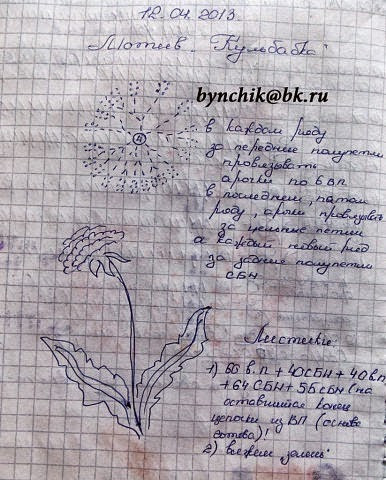 12.04.2013.
Мотив „Кульбабка"
bynchik@bk.ru
4
в каждом ряду
за передние полупетли
провязывать
арочки по 6 ВП
в последнем, пятом
ряду, арочки провязывать
за цельные петли
а каждый новый ряд
за задние полупетли
СБН
Листики:
1) 66 в.п + 40СБН + 40 в.п
+ 64 СБН + 5 Б СБН (на
оставшийся конец
цепочки из ВП (основа
готова)!
2) вяжем „зелень"